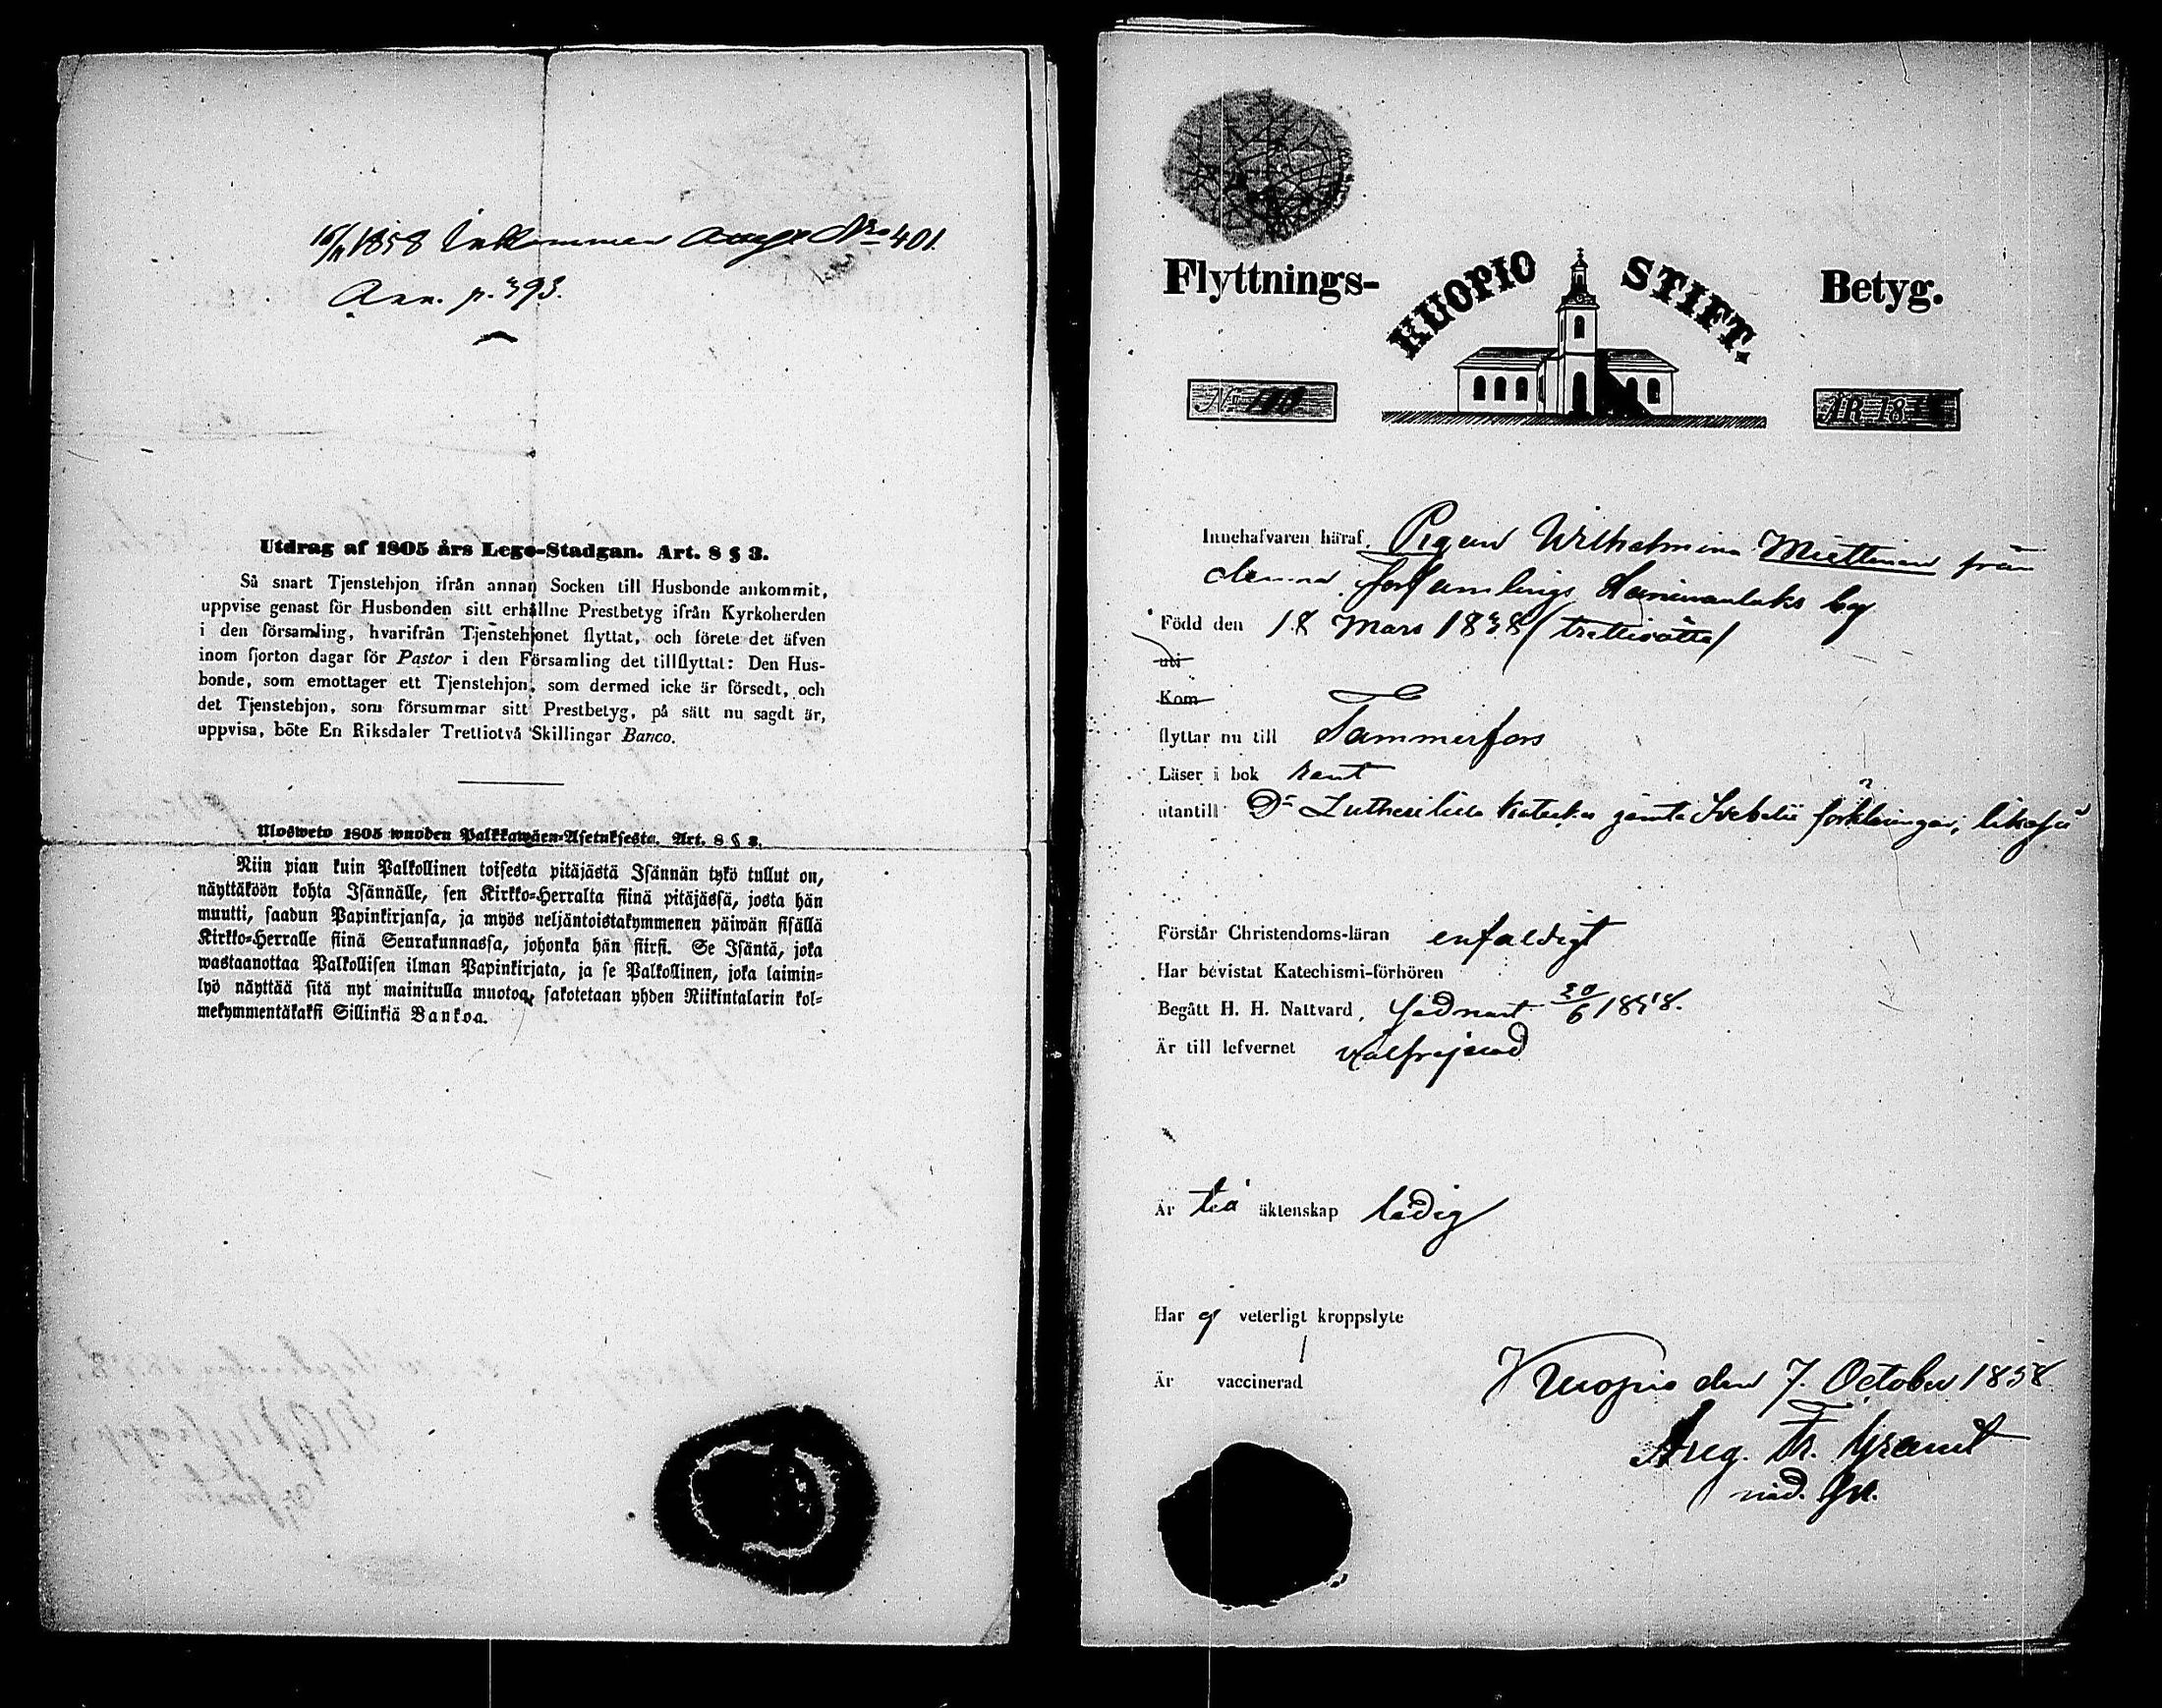 16/11 1858 Inkommen Nro 401.
Ann. p. 393.
Utdrag af 1805 års Lego-Stadgan. Art. 8 § 3.
Så snart Tjenstehjon ifrån annan Socken till Husbonde ankommit,
uppvise genast för Husbonden sitt erhållne Prestbetyg ifrån Kyrkoherden
i den församling, hvarifrån Tjenstehjonet flyttat, och förete det äfven
inom fjorton dagar för Pastor i den Församling det tillflyttat: Den Hus-
bonde, som emottager ett Tjenstehjon, som dermed icke är försedt, och
det Tjenstehjon, som försummar sitt Prestbetyg, på sätt nu sagdt är,
uppvisa, böte En Riksdaler Trettiotvå Skillingar Banco.
Ulosweto 1805 wuoden Palkkawäen-Asetuksesta. Art. 8 § 3.
Niin pian kuin Palkollinen toisesta pitäjästä Isännän tykö tullut on,
näyttäköön kohta Isännälle, sen Kirkko-Herralta siinä pitäjässä, josta hän
muutti, saadun Papinkirjansa, ja myös neljäntoistakymmenen päiwän sisällä
Kirkko-Herralle siinä Seurakunnassa, johonka hän siirsi. Se Isäntä, joka
wastaanottaa Palkollisen ilman Papinkirjata, ja se Palkollinen, joka laimin-
lyö näyttää sitä nyt mainitulla muotoa, sakotetaan yhden Riikintalarin kol-
mekymmentäkaksi Sillinkiä Bankoa.
Flyttnings- KUOPIO STIFT. Betyg.
No 110 ÅR 18
Innehafvaren häraf, Pigan Wilhelmina Miettinen från
denna Församlings by
Född den 18 Mars 1838 (trettioåtta)
uti
Kom
flyttar nu till Tammerfors
Läser i bok rent
utantill Dr Lutheri lilla Kateches jemte Svebelii förklaringar, likaså
Förstår Christendoms-läran enfaldigt
Har bevistat Katechismi-förhören
Begått H. H. Nattvard, sednast 20/6 1858.
Är till lefvernet välfrejdad
Är till äktenskap ledig
Har ej veterligt kroppslyte
Är vaccinerad
Kuopio den 7. October 1858
Aug. Fr. Granit